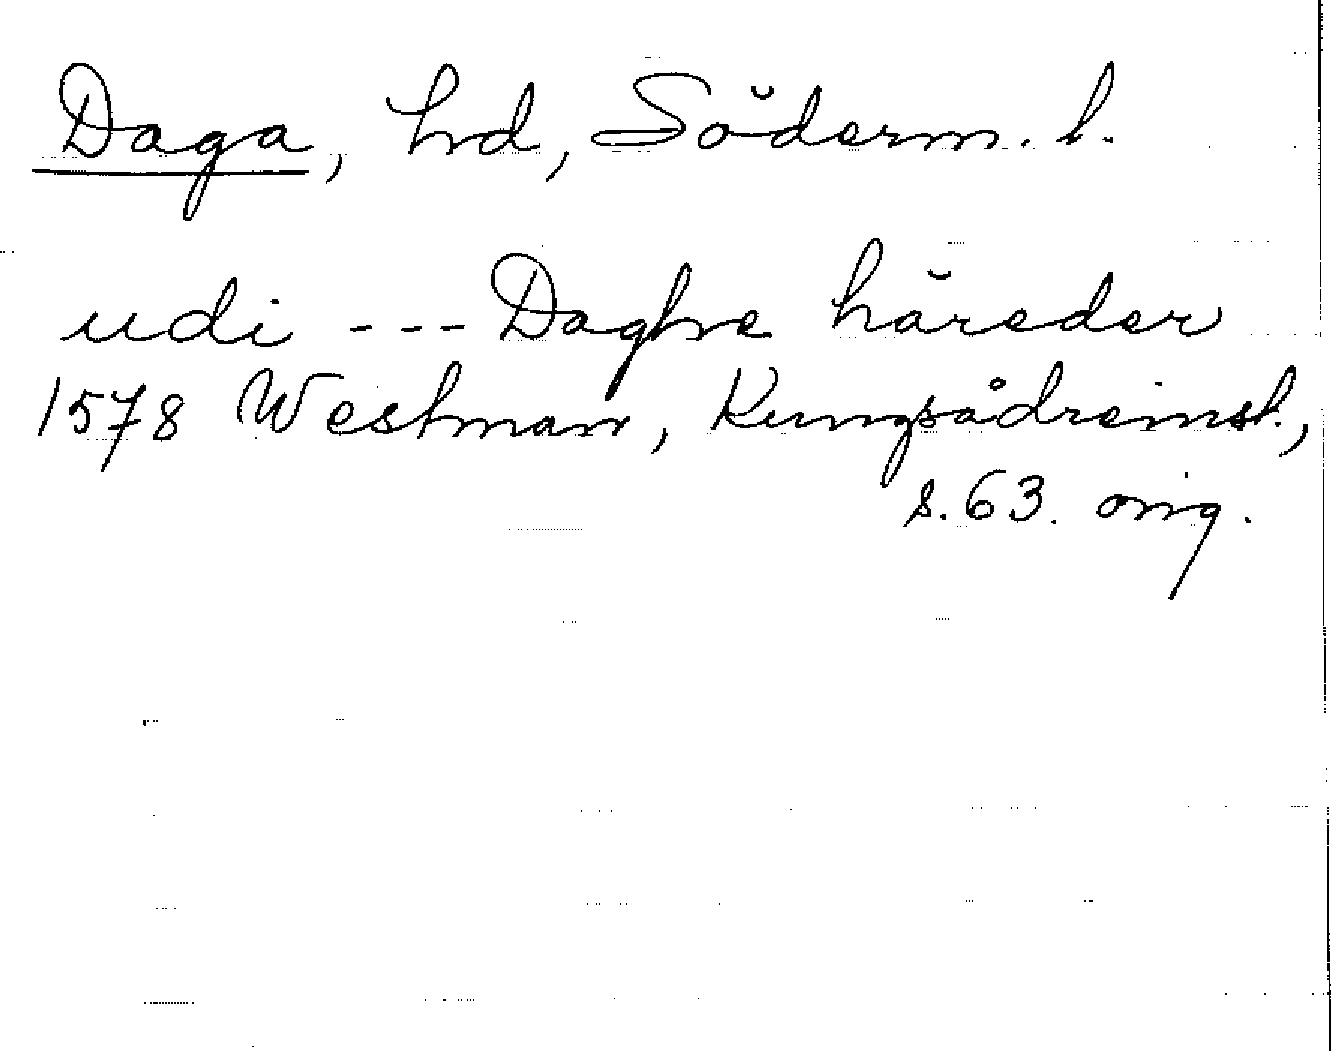 Daga, hd, Söderm. l.
udi --- Daghe häreder
1578 Westman, Kungsådreinst.,
s. 63. orig.